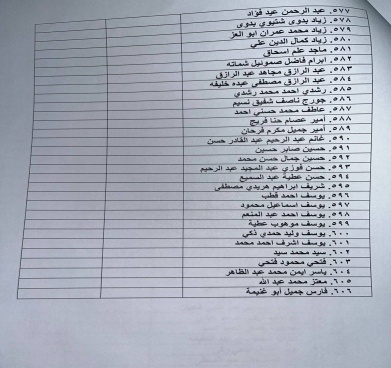 ٥٧٧. عبد الرحمن عيد فؤاد
٥٧٨. زياد بدوى شتيوي بدوى
٥٧٩. زياد محمد عمران ابو العز
٥٨٠. زياد كمال الدين علي
٥٨١. ماجد علم اسحاق
٥٨٢. ابرام فاضل صموئيل شماته
٥٨٣. عبد الرازق مجاهد عبد الرازق
٥٨٤. عبد الرازق مصطفى عبده خليفه
٥٨٥. رشدي احمد محمد رشدي
٥٨٦. جورج ناصف شفيق نسيم
٥٨٧. عاطف محمد حسني احمد
٥٨٨. أمير عصام حنا فريج
٥٨٩. أمير جميل مكرم فرحان
٥٩٠. غانم عبد الرحيم عبد القادر حسن
٥٩١. حسين صابر حسين
٥٩٢. حسين جمال حسن محمد
٥٩٣. حسن فوزي عبد المجيد عبد الرحيم
٥٩٤. حسن عطية عبد السميع
٥٩٥. شريف ابراهيم هريدي مصطفى
٥٩٦. يوسف احمد قطب
٥٩٧. يوسف اسماعيل محمود
٥٩٨. يوسف احمد عبد المنعم
٥٩٩. يوسف موهوب عطية
٦٠٠. يوسف وليد حمدي ذكي
٦٠١. يوسف اشرف احمد محمد
٦٠٢. سيد محمد سيد
٦٠٣. فتحي محمود فتحي
٦٠٤. ياسر ايمن محمد عبد الظاهر
٦٠٥. معتز محمد عبد الله
٦٠٦. فارس جميل ابو غنيمة